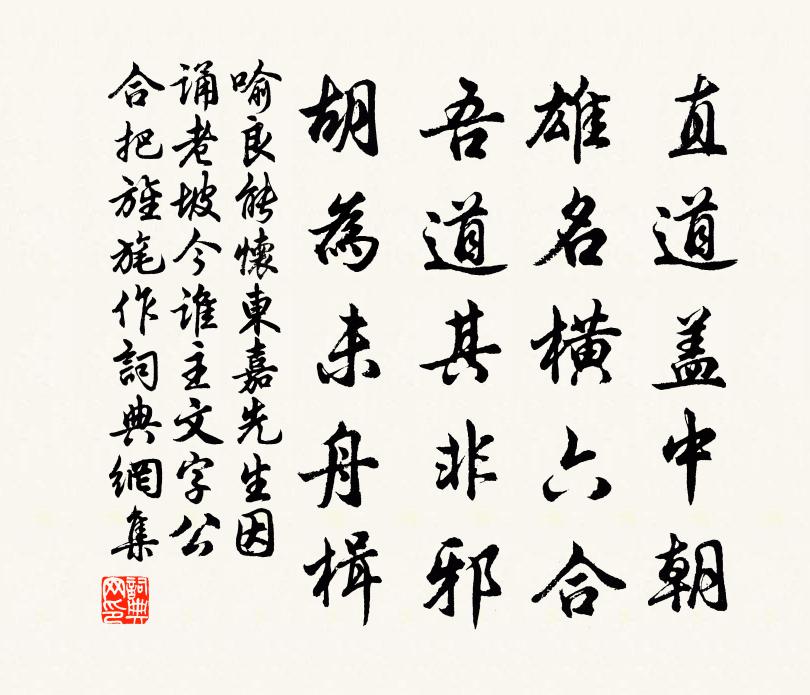 直道盖中朝
雄名橫六合
吾道其非邪
胡為未舟楫
喻良能懷東嘉先生因
誦老坡今誰主文字公
合把旌旄作詞典網集
詞典
网印